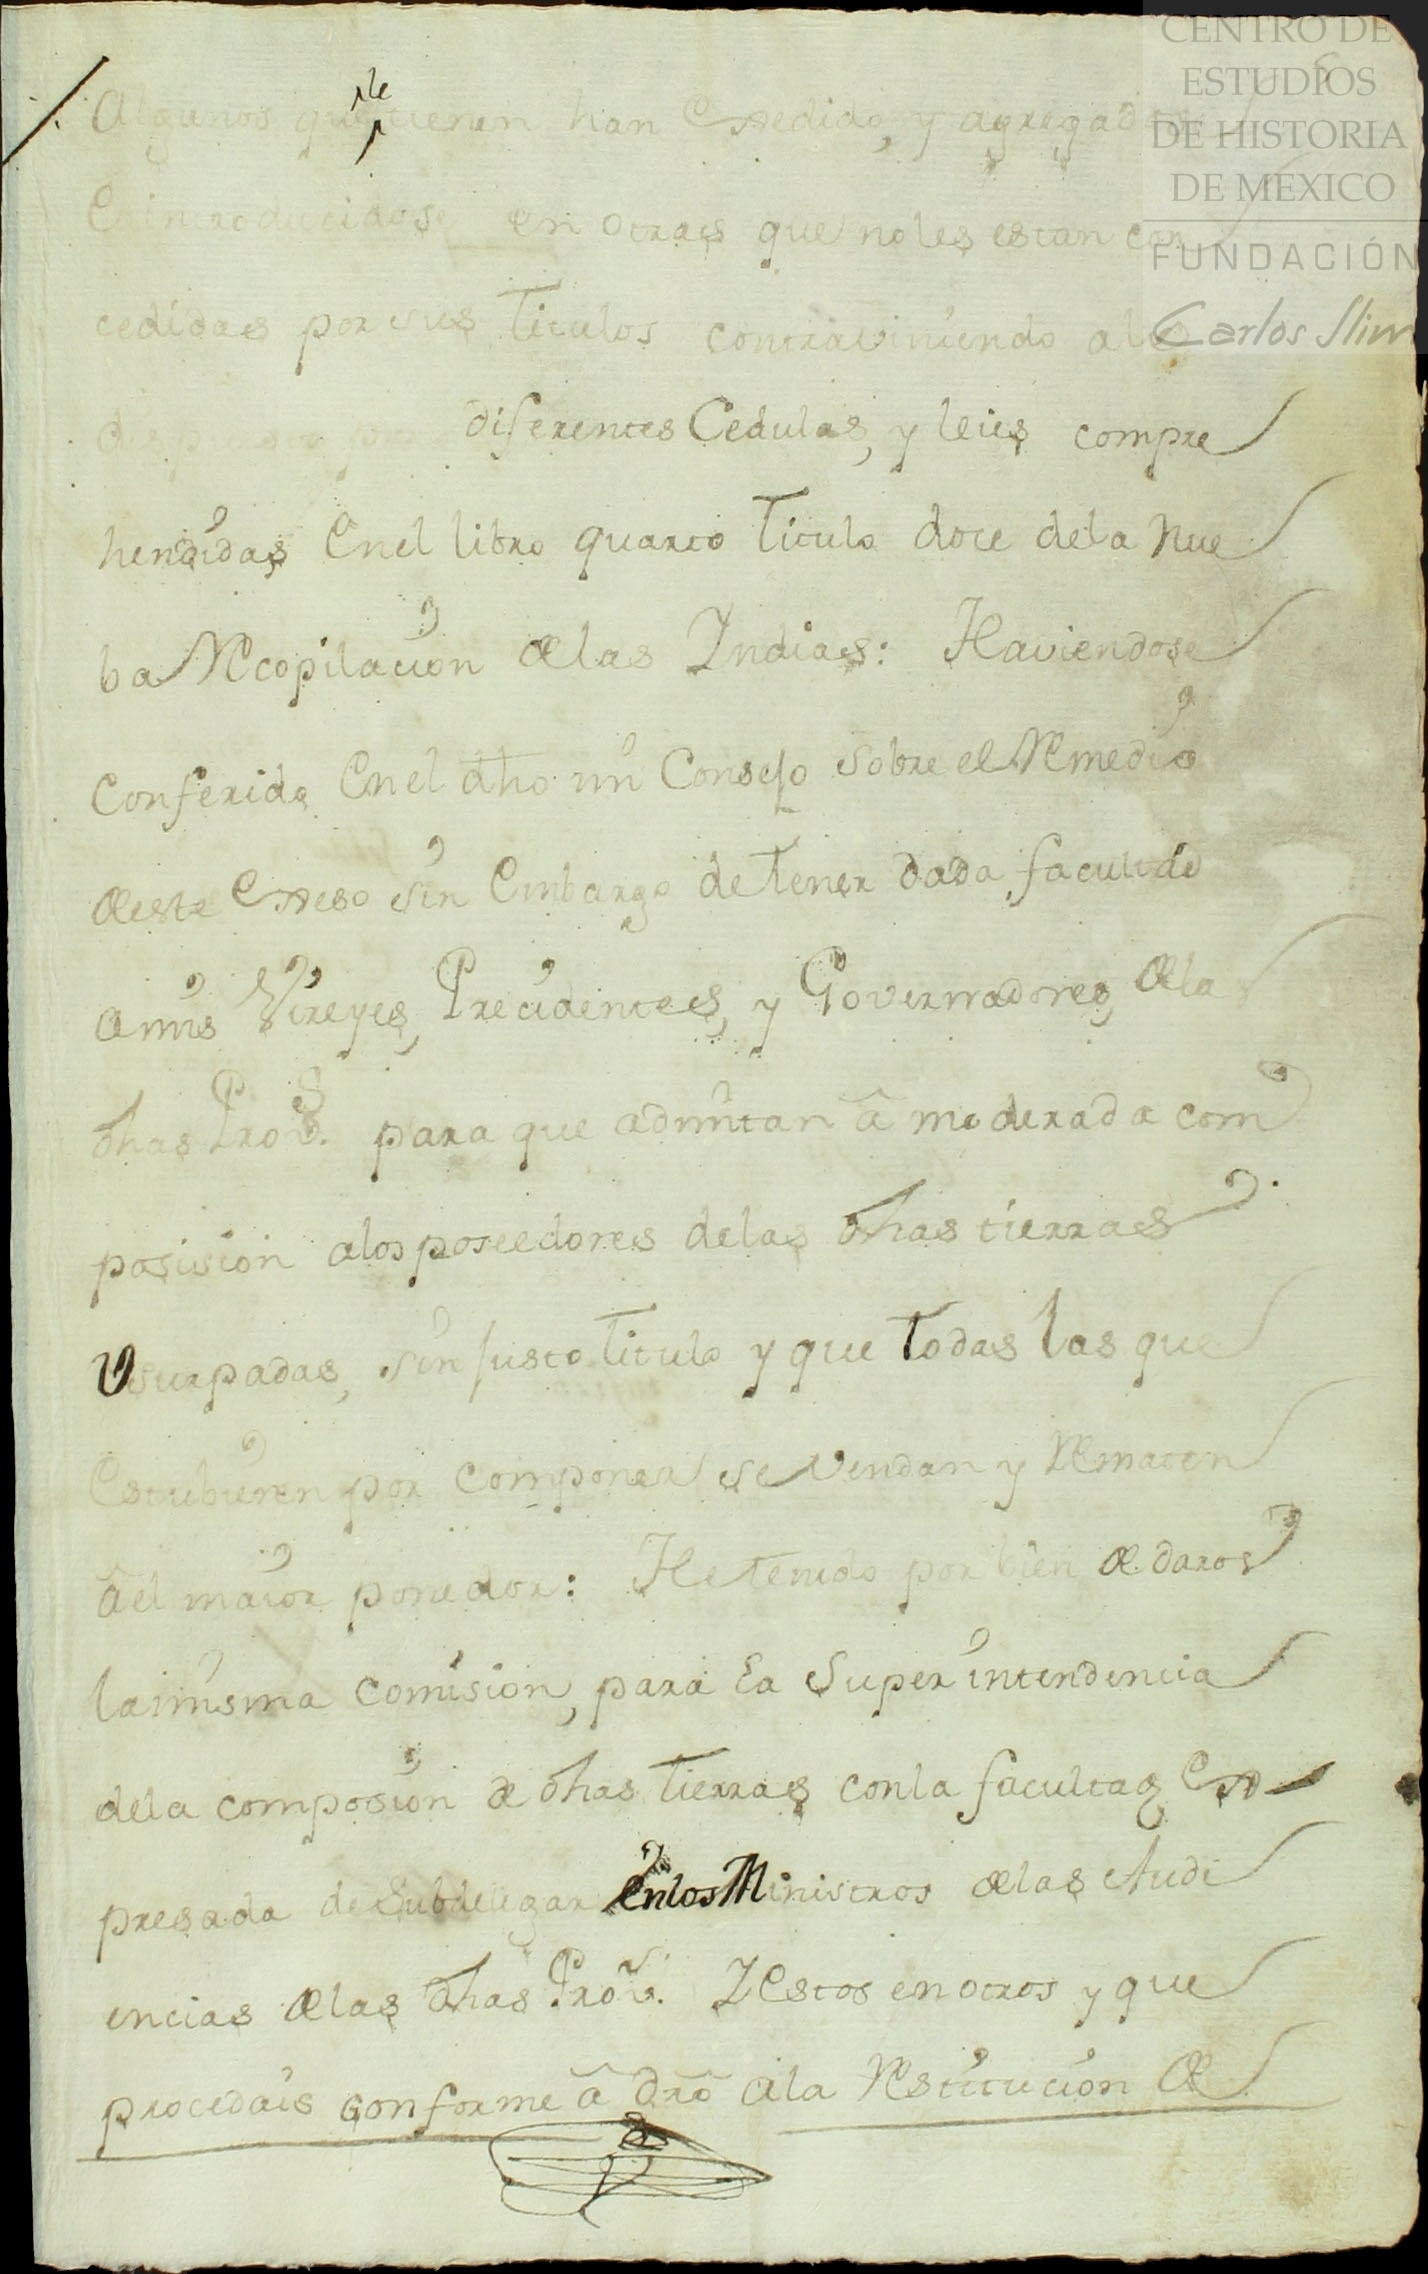 CENTRO DE
ESTUDIOS
DE HISTORIA
DE MEXICO
FUNDACIÓN
Carlos Slim
Algunos que le tienen han Exedido, y agregado
E introducidose en otras que no les estan con
cedidas por sus Titulos contraviniendo a lo
diferentes Cedulas, y leies compre
hendidas En el libro quarto Titulo doce de la Nue
ba Recopilacion de las Indias: Haviendose
Conferido En el dho mi Consejo sobre el Remedio
de este Exeso sin Embargo de Tener dada facultad
a mis Vireyes, Precidentes, y Governadores, de la
dhas Prov.s para que admitan â moderada com
posision a los poseedores de las dhas tierras
Vsurpadas, sin justo Titulo y que Todas las que
Estubieren por componer se Vendan y Rematen
âel maior ponedor: He tenido por bien de daros
la misma comision, para la Superintendencia
de la composion de dhas Tierras con la facultad Ex
presada de Subdelegar En los Ministros de las Audi
encias de las dhas Prov.s Y Estos en otros y que
procedais conforme â dro a la Restitucion de